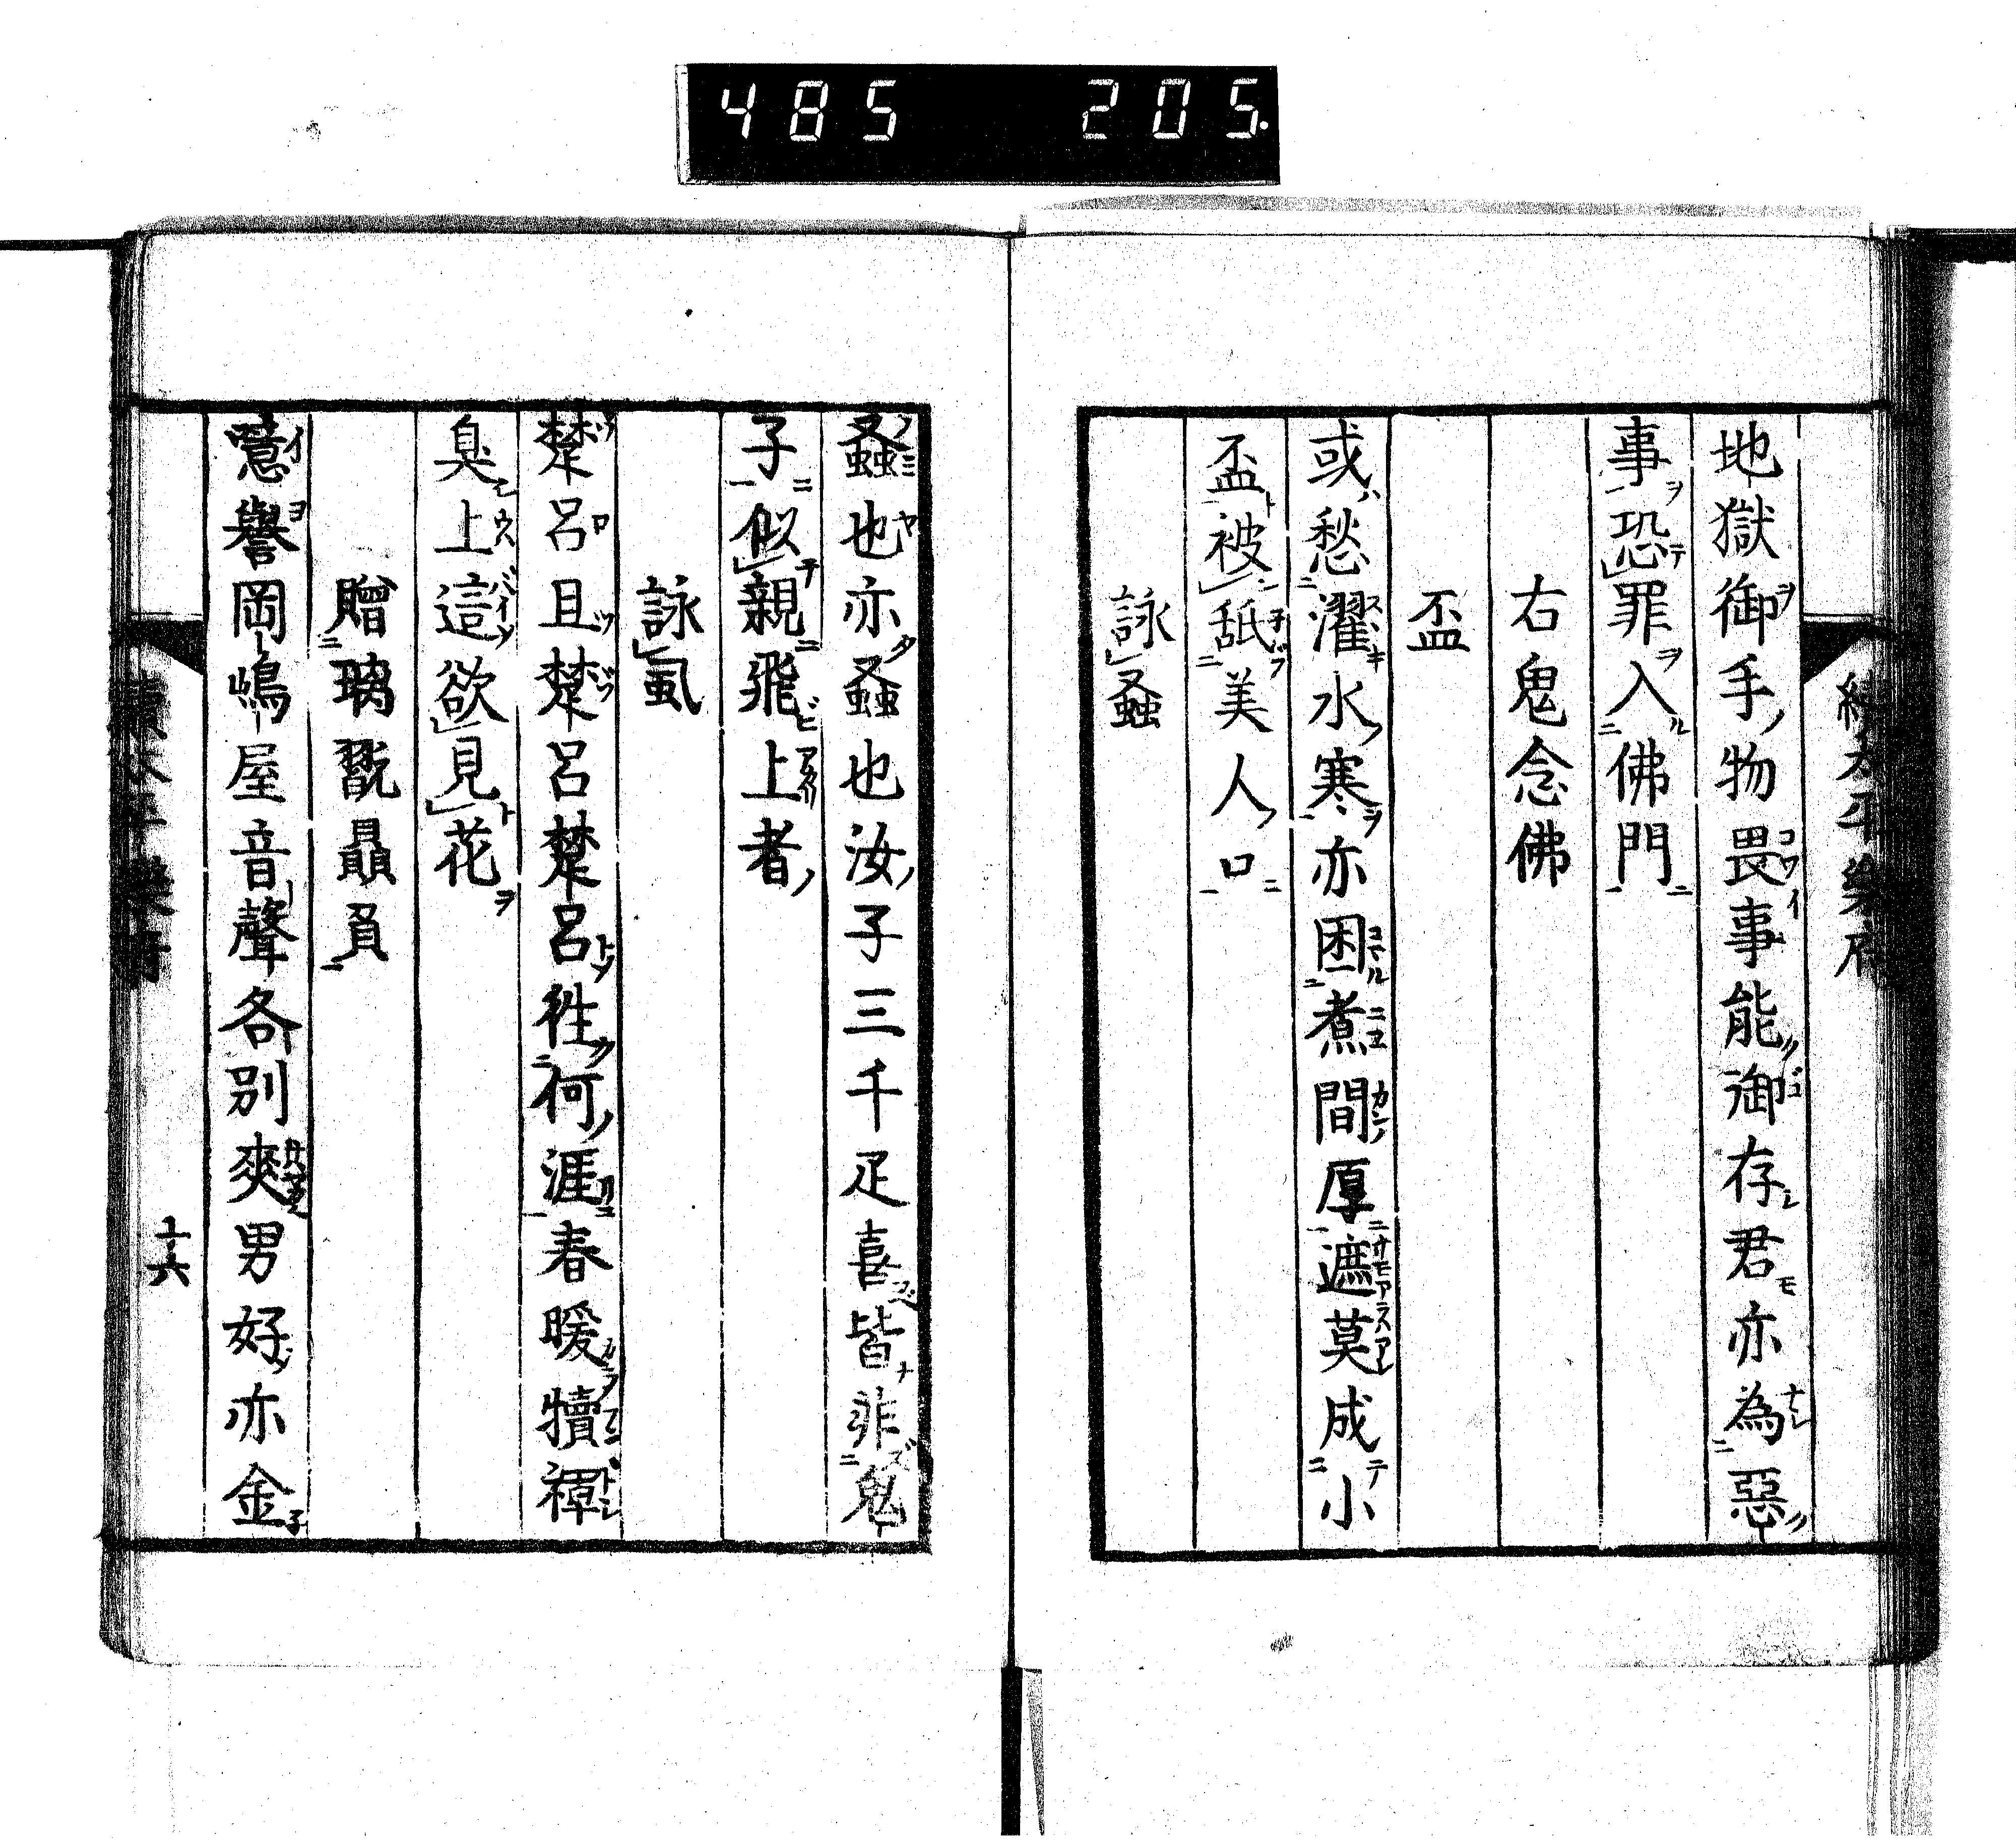 485 205.
續太平樂府
地獄御手物畏事能御存君亦為惡
事恐罪入佛門
右鬼念佛
盃
或愁濯水寒亦困煮間厚遮莫成小
盃被舐美人口
詠蚤
蚤也亦蚤也汝子三千疋喜皆非鬼
子似親飛上者
詠虱
楚呂且楚呂楚呂徃何涯春暖犢褌
臭上這欲見花
贈璃翫贔負
噫譽岡嶋屋音聲各別爽男好亦金
十六